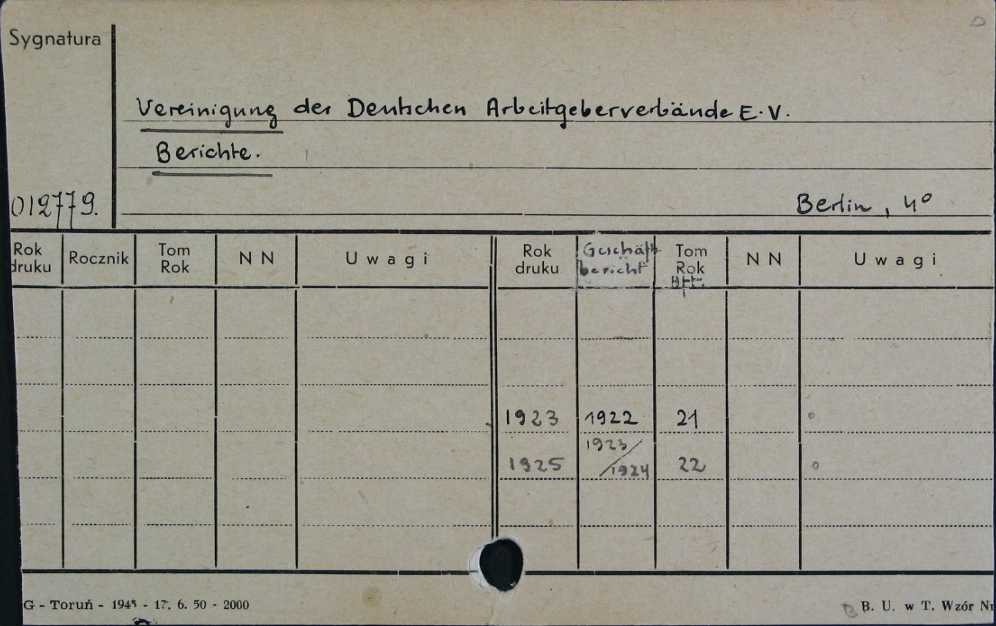 Sygnatura
Vereinigung der Deutschen Arbeitgeberverbände E.V.
Berichte.
012779.
Berlin, 4°
Rok druku Rocznik Tom Rok N N Uwagi Rok druku Geschäftsbericht Tom Rok Hft. N N Uwagi
1923 1922 21 °
1925 1923/1924 22 °
G - Toruń - 1945 - 17. 6. 50 - 2000
B. U. w T. Wzór Nr